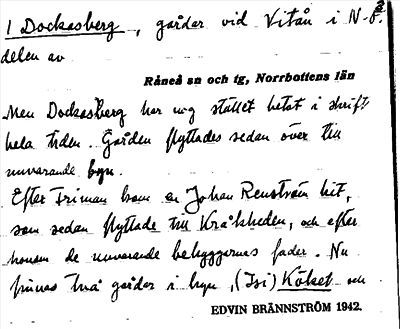 1 Dockasberg, gårdar vid Vitån i N.Ö.
2
delen av
Råneå sn och tg, Norrbottens län
Men Dockasberg har nog stället hetat i skrift
hela tiden. Gården flyttades sedan över till
nuvarande byn.
Efter Friman kom en Johan Renström hit,
som sedan flyttade till Kråkheden, och efter
honom de nuvarande bebyggarnas fader. Nu
finnas två gårdar i byn, (Isi) Köket och
EDVIN BRÄNNSTRÖM 1942.